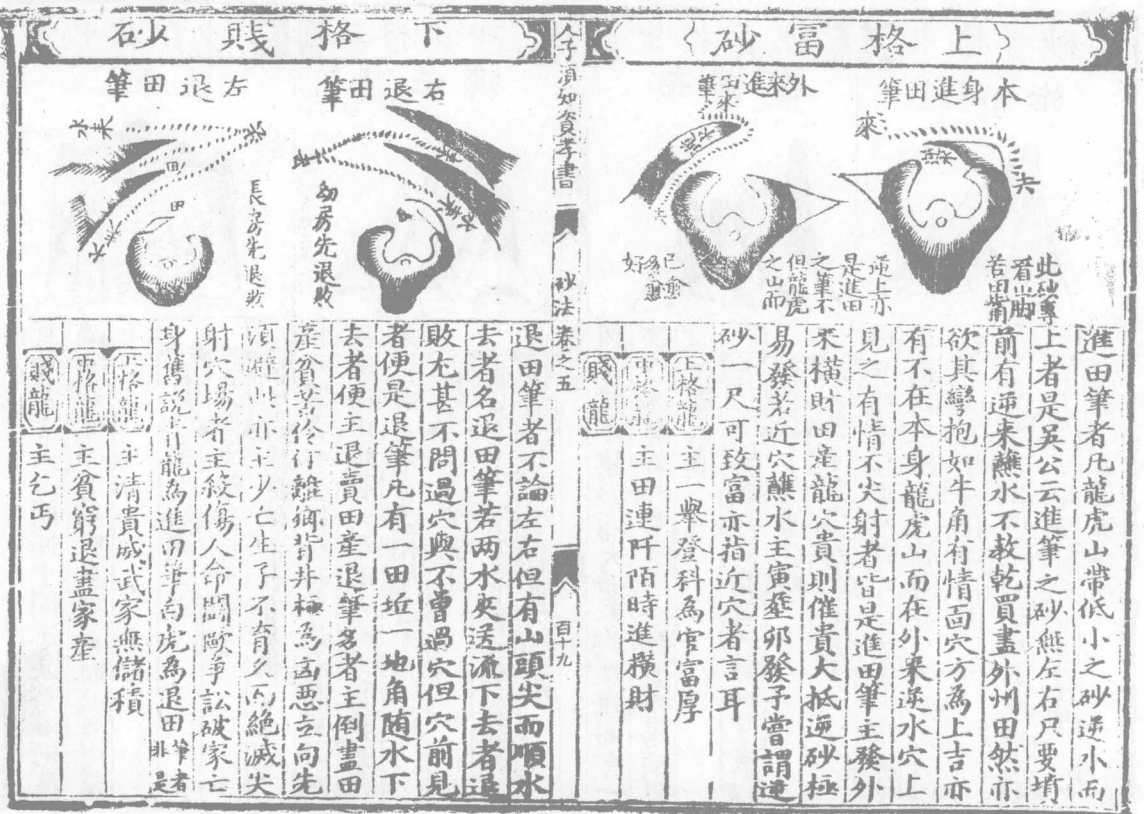 上格富砂
本身進田筆
來
去
此砂專
看山脚
逆上亦
是進田
之筆不
但龍虎
之山而
已愈
多愈
好
外來進田筆
進田筆者凡龍虎山帶低小之砂逆水而
上者是吳公云進筆之砂無左右只要堉
前有逆來蘸水不教乾買盡外州田然亦
欲其彎抱如牛角有情面穴方為上吉亦
有不在本身龍虎山而在外來逆水穴上
見之有情不尖射者皆是進田筆主發外
來橫財田産龍穴貴則催貴大抵逆砂極
易發若近穴蘸水主寅葬卯發予嘗謂逆
砂一尺可致富亦指近穴者言耳
上格龍 主一舉登科為官富厚
中格龍 主田連阡陌時進橫財
賤龍
人子須知資孝書
砂法 卷之五
百十九
下格賤砂
右退田筆
幼房先退敗
左退田筆
水去
田
田
長房先退敗
退田筆者不論左右但有山頭尖而順水
去者名退田筆若两水夾送流下去者退
敗尤甚不問過穴與不曾過穴但穴前見
者便是退筆凡有田坵一地角随水下
去者便主退賣田産退筆名者主倒盡田
産貧苦伶仃離鄉背井極為凶惡立向先
須避此亦主少亡生子不育久而絶滅尖
射穴場者主殺傷人命鬪毆爭訟破家亡
身舊說青龍為進田筆白虎為退田筆者非是
上格龍 主清貴威武家無儲積
中格龍 主貧窮退盡家産
賤龍 主乞丐